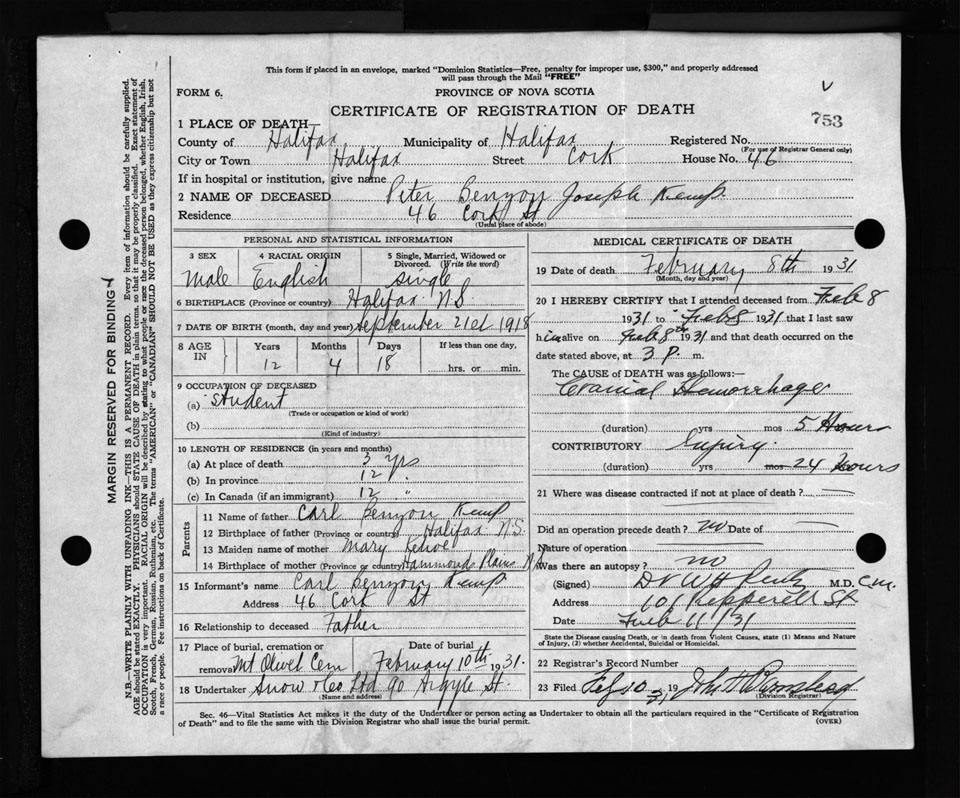 This form if placed in an envelope, marked "Dominion Statistics—Free, penalty for improper use, $300," and properly addressed
will pass through the Mail "FREE"
FORM 6.
PROVINCE OF NOVA SCOTIA
CERTIFICATE OF REGISTRATION OF DEATH
753
1 PLACE OF DEATH—
County of Halifax Municipality of Halifax Registered No.
(For use of Registrar General only)
City or Town Halifax Street Cork House No. 46
If in hospital or institution, give name
2 NAME OF DECEASED Peter Benyon Joseph Kemp
Residence 46 Cork St
(Usual place of abode)
PERSONAL AND STATISTICAL INFORMATION
3 SEX 4 RACIAL ORIGIN 5 Single, Married, Widowed or Divorced. (Write the word)
Male English Single
6 BIRTHPLACE (Province or country) Halifax N.S
7 DATE OF BIRTH (month, day and year) September 21st 1918
8 AGE IN Years Months Days If less than one day,
12 4 18 hrs. or min.
9 OCCUPATION OF DECEASED
(a) Student
(Trade or occupation or kind of work)
(b)
(Kind of industry)
10 LENGTH OF RESIDENCE (in years and months)
(a) At place of death 3 yrs
(b) In province 12 "
(c) In Canada (if an immigrant) 12 "
Parents
11 Name of father Carl Benyon Kemp
12 Birthplace of father (Province or country) Halifax N.S.
13 Maiden name of mother Mary Kehoe
14 Birthplace of mother (Province or country) Hammonds Plains N.S
15 Informant's name Carl Benyon Kemp
Address 46 Cork St
16 Relationship to deceased Father
17 Place of burial, cremation or removal Mt Olivet Cem Date of burial February 10th 1931.
18 Undertaker Snow & Co Ltd 90 Argyle St.
(Name and address)
MEDICAL CERTIFICATE OF DEATH
19 Date of death February 8th 1931
(Month, day and year)
20 I HEREBY CERTIFY that I attended deceased from Feb 8
1931 to Feb 8 1931 that I last saw
him alive on Feb 8th 1931 and that death occurred on the
date stated above, at 3 P. m.
The CAUSE of DEATH was as follows:—
Cranial Hemorrhage
(duration) yrs mos 5 Hours
CONTRIBUTORY Injury.
(duration) yrs mos 24 Hours
21 Where was disease contracted if not at place of death?
Did an operation precede death? no Date of
Nature of operation
Was there an autopsy? no
(Signed) Dr W H M.D. C.M.
Address 101 Pepperell St
Date Feb 11/31
State the Disease causing Death, or in death from Violent Causes, state (1) Means and Nature
of Injury, (2) whether Accidental, Suicidal or Homicidal.
22 Registrar's Record Number
23 Filed Feb 10 1931 John
(Division Registrar)
Sec. 46—Vital Statistics Act makes it the duty of the Undertaker or person acting as Undertaker to obtain all the particulars required in the "Certificate of Registration
of Death" and to file the same with the Division Registrar who shall issue the burial permit.
(OVER)
MARGIN RESERVED FOR BINDING
N.B.—WRITE PLAINLY WITH UNFADING INK—THIS IS A PERMANENT RECORD. Every item of information should be carefully supplied.
AGE should be stated EXACTLY. PHYSICIANS should STATE CAUSE OF DEATH in plain terms, so that it may be properly classified. Exact statement of
OCCUPATION is very important. RACIAL ORIGIN will be described by stating to what people or race the deceased person belonged, whether English, Irish,
Scotch, French, German, Russian, Ruthenian, etc. The terms "AMERICAN" or "CANADIAN" SHOULD NOT BE USED as they express citizenship but not
a race or people. Fee instructions on back of Certificate.